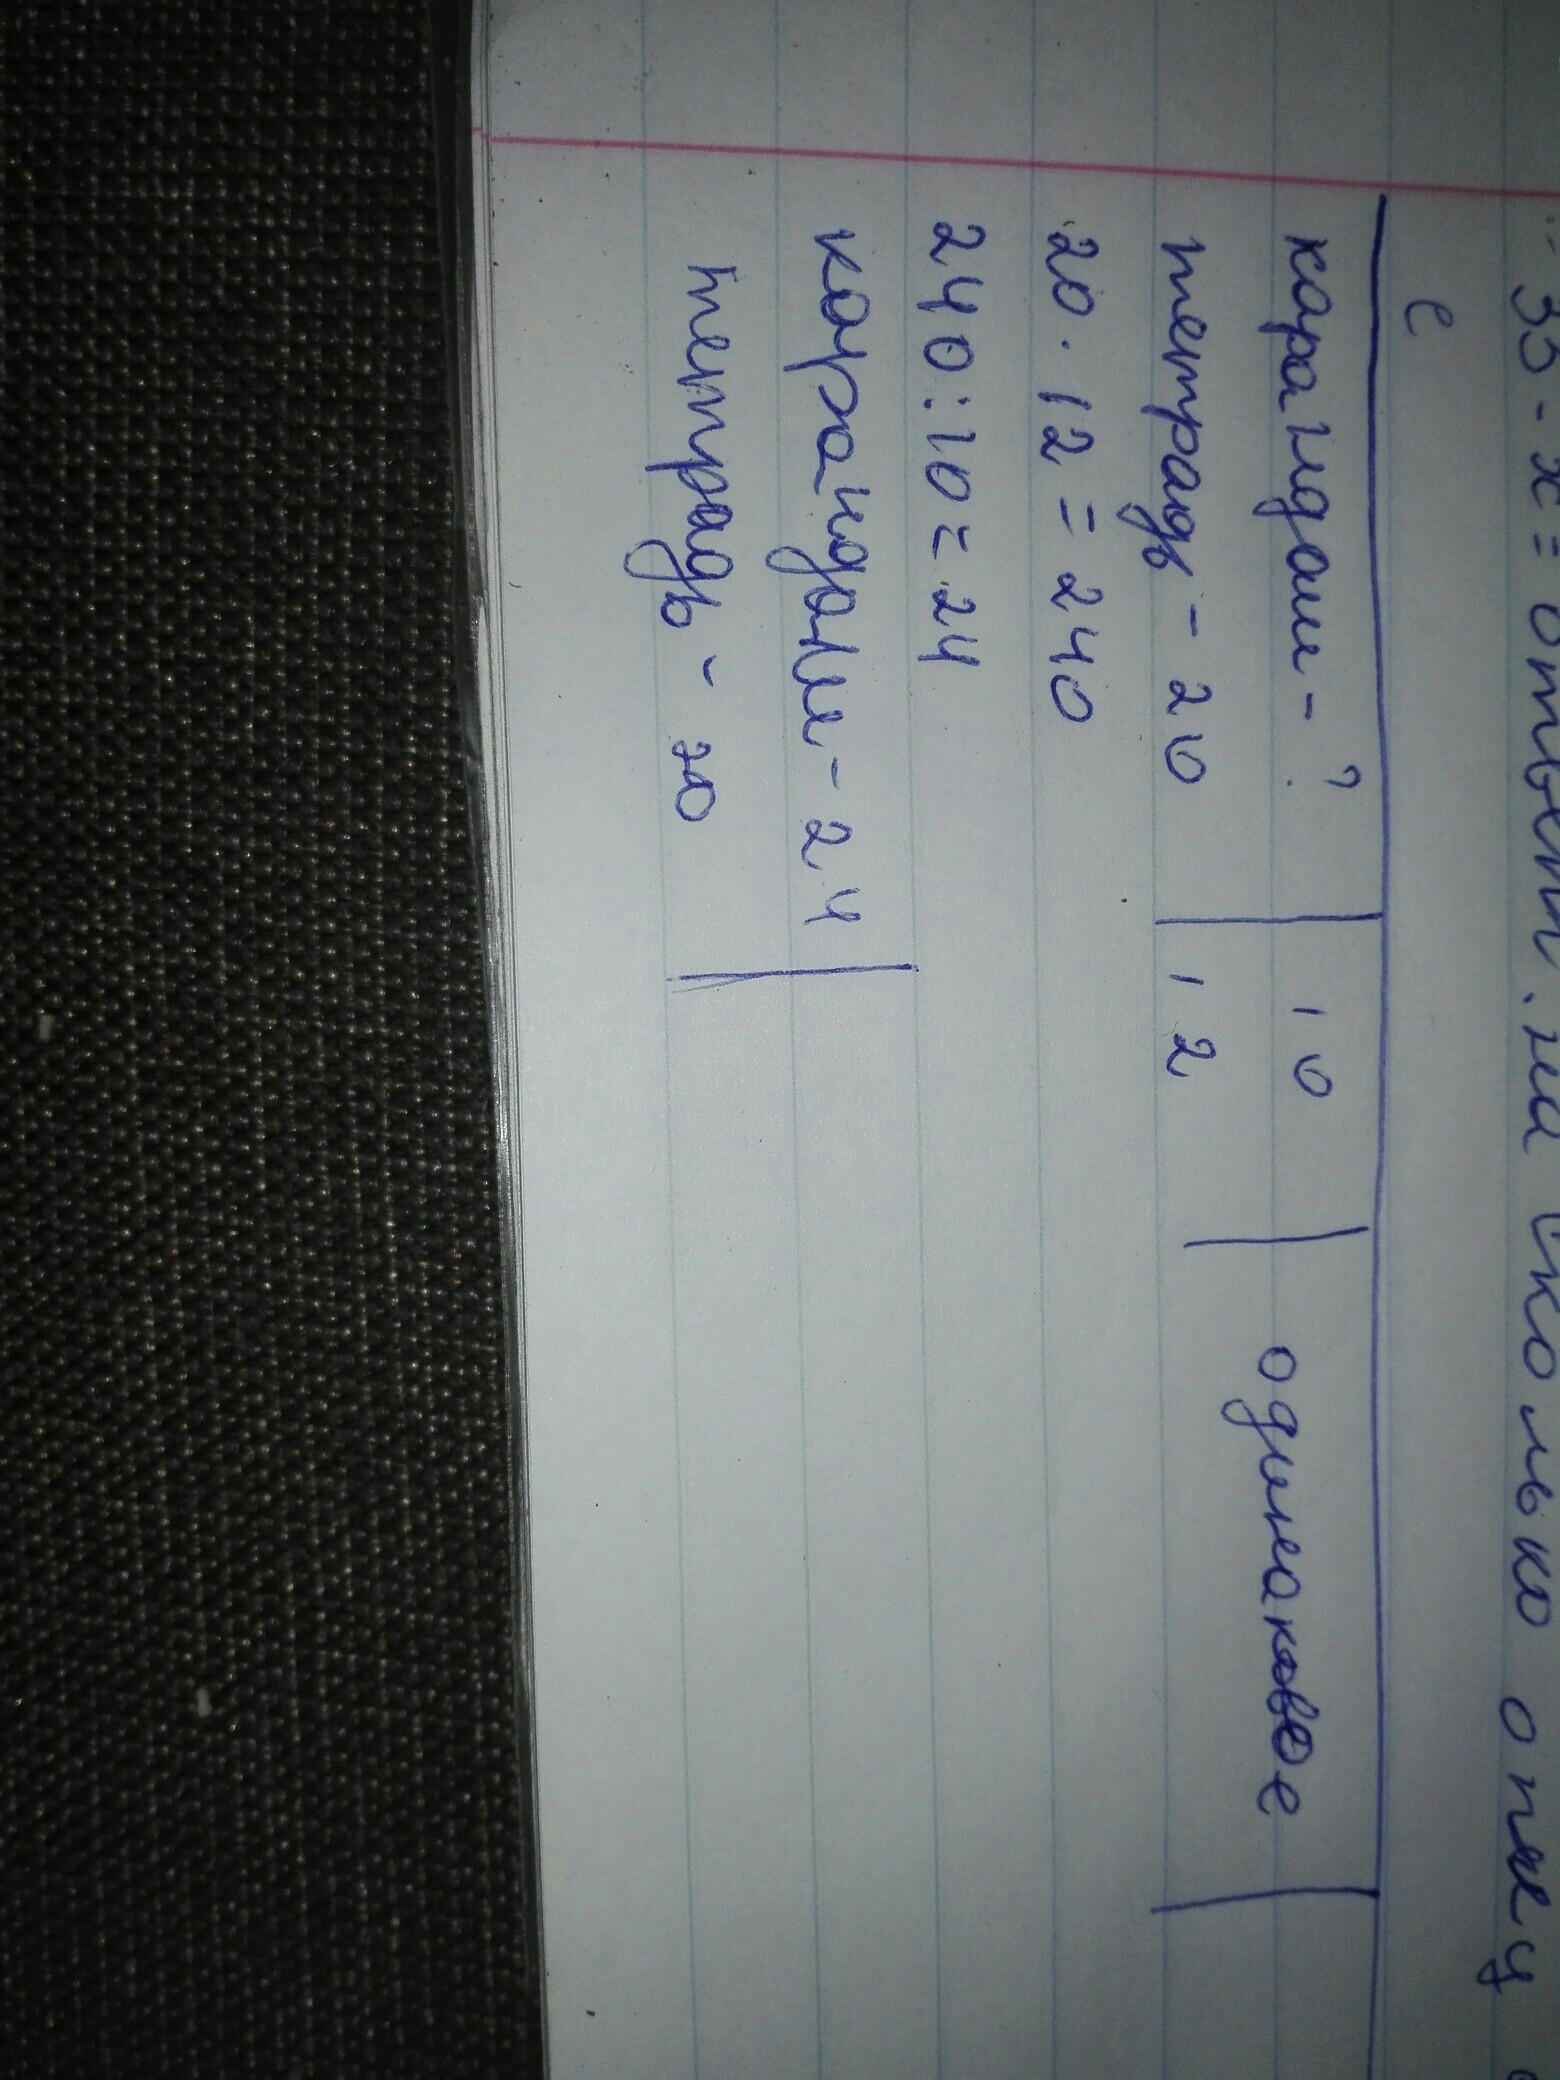 33 - х = ответ. на сколько
е
карандаш - ? | 10 | одинаковое |
тетрадь - 20 | 12
20 · 12 = 240
240 : 10 = 24
карандаш - 24 |
тетрадь - 20